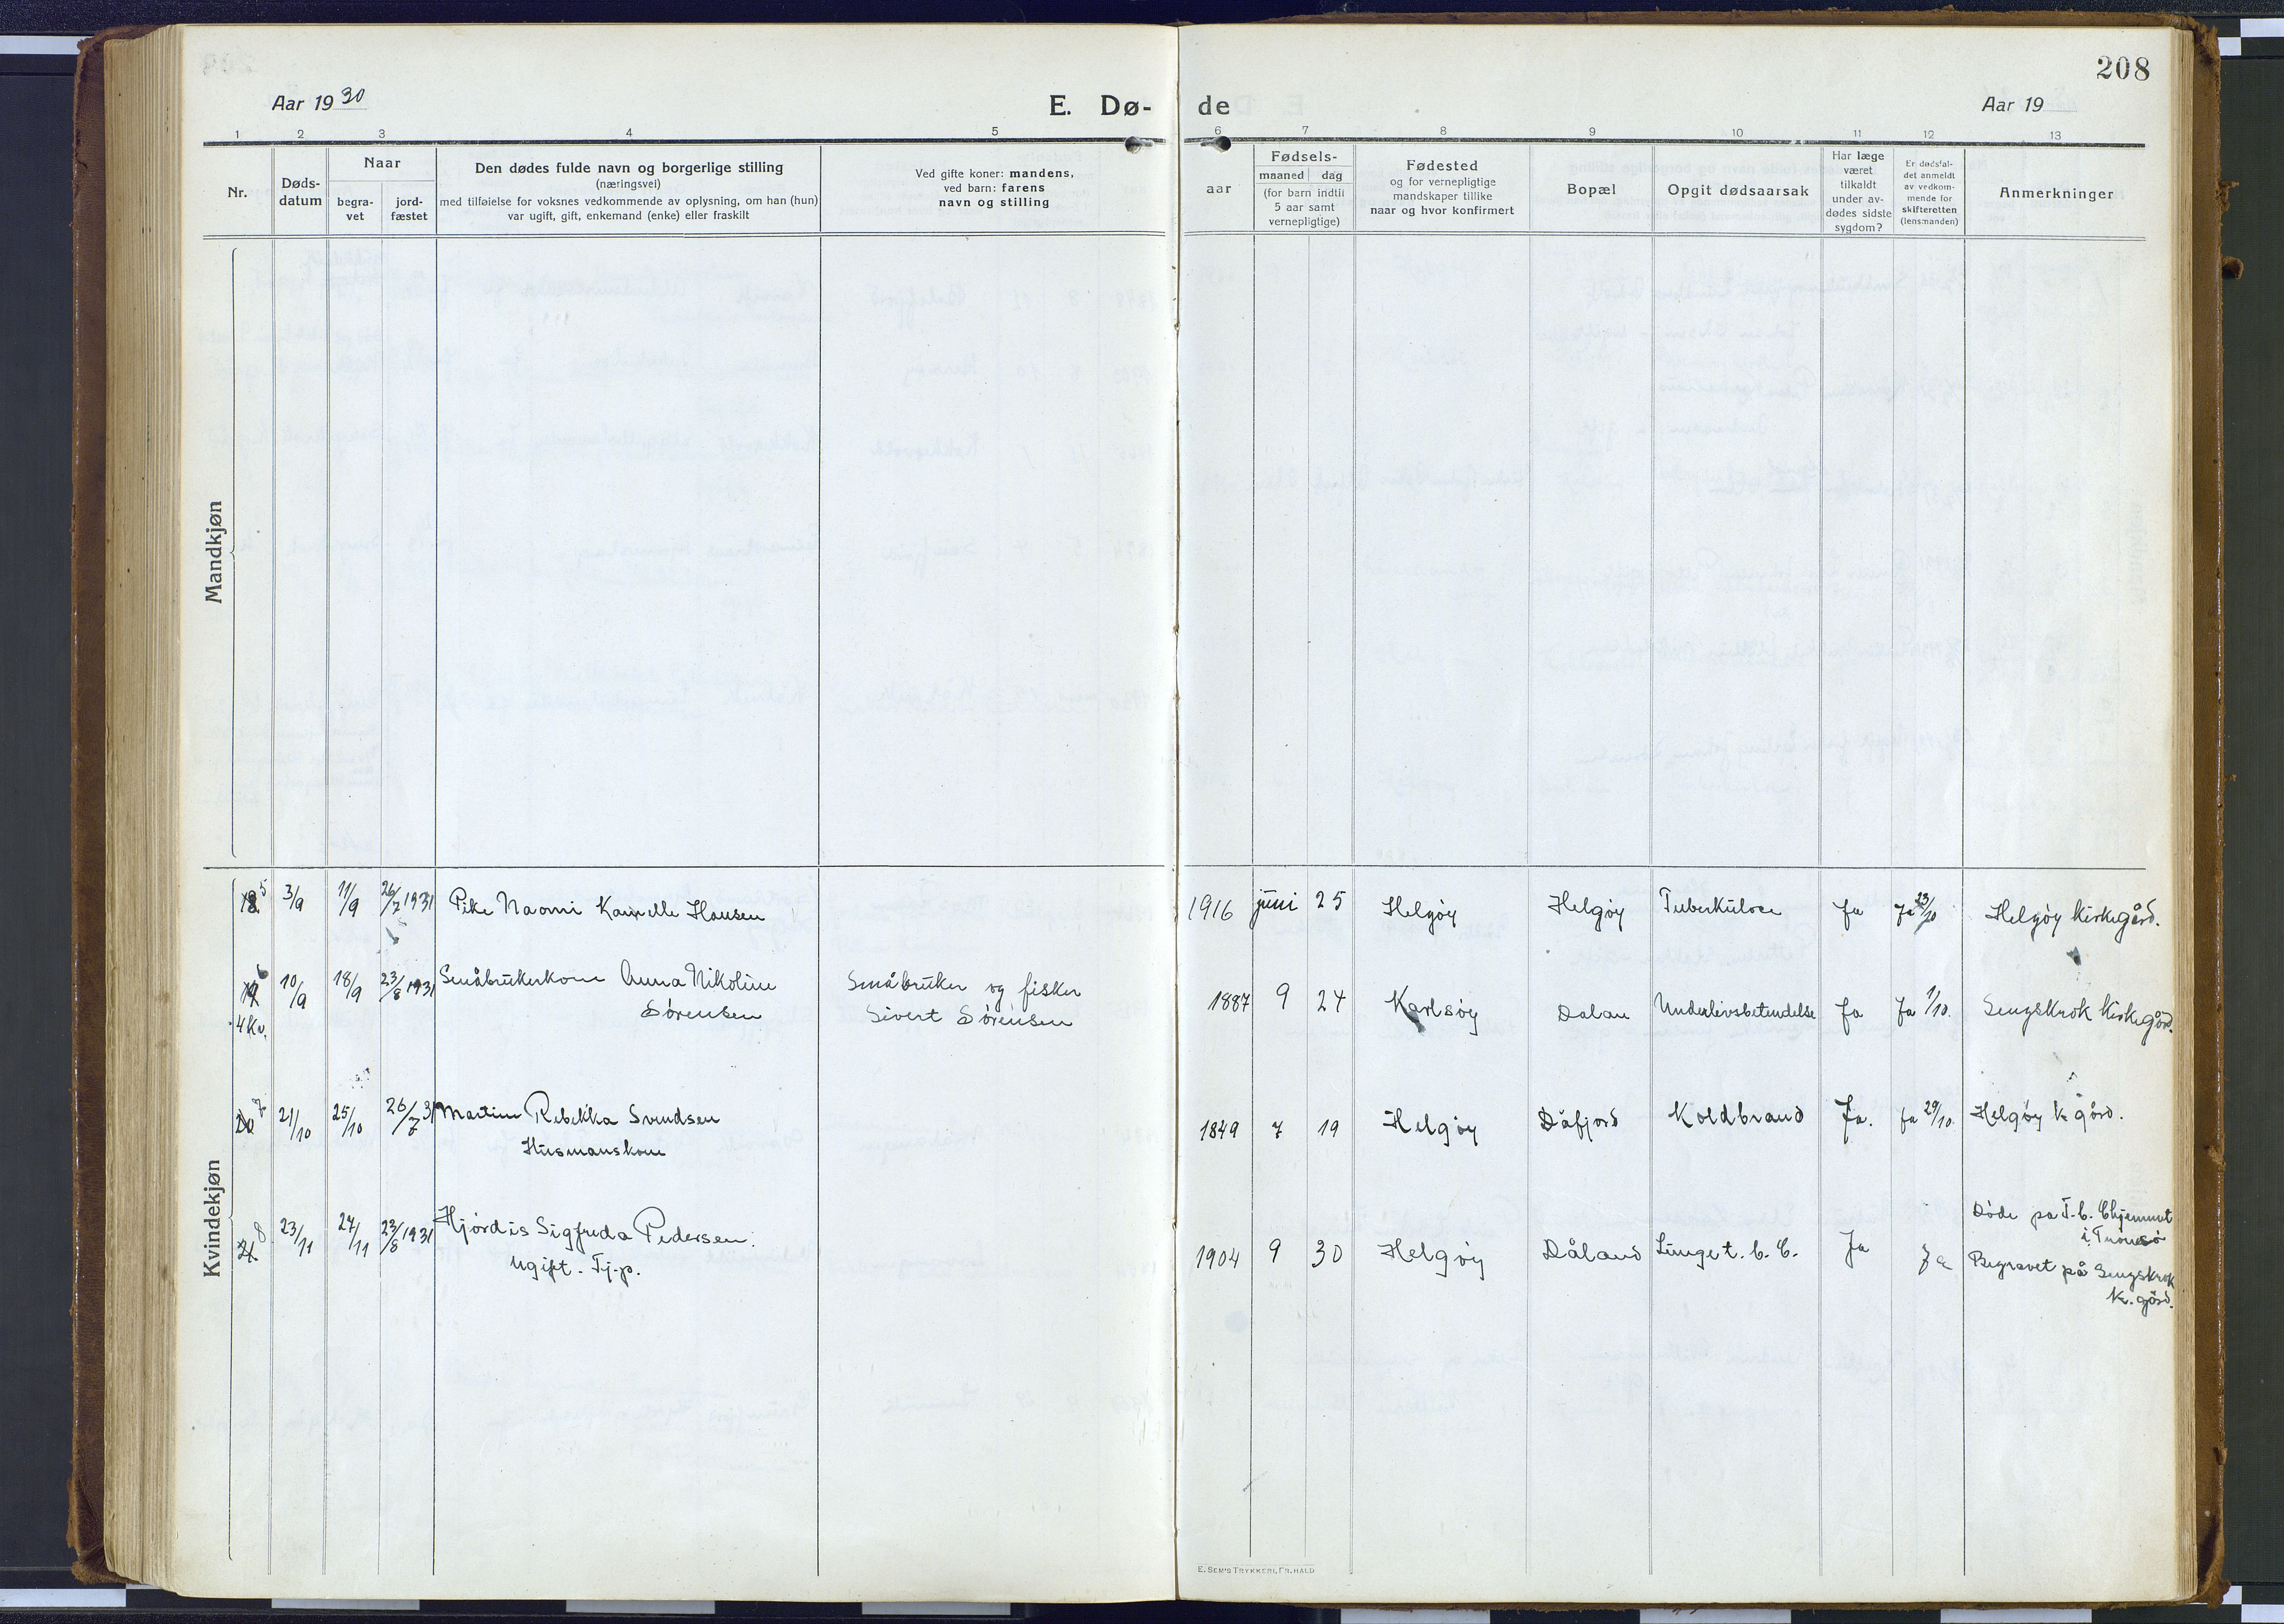 208
Aar 1930
E. Dø-
de
Aar 19
1 2 3 4 5 6 7 8 9 10 11 12 13
Nr.
Døds-
datum
Naar
begra-
vet
jord-
fæstet
Den dødes fulde navn og borgerlige stilling
(næringsvei)
med tilføielse for voksnes vedkommende av oplysning, om han (hun)
var ugift, gift, enkemand (enke) eller fraskilt
Ved gifte koner: mandens,
ved barn: farens
navn og stilling
aar
Fødsels-
maaned dag
(for barn indtil
5 aar samt
vernepligtige)
Fødested
og for vernepligtige
mandskaper tillike
naar og hvor konfirmert
Bopæl
Opgit dødsaarsak
Har læge
været
tilkaldt
under av-
dødes sidste
sygdom?
Er dødsfal-
det anmeldt
av vedkom-
mende for
skifteretten
(lensmanden)
Anmerkninger
Mandkjøn
Kvindekjøn
18 5 3/9 11/9 26/7 1931 Pike Naomi Kamelle Hansen 1916 juni 25 Helgøy Helgøy Tuberkulose Ja Ja 23/10 Helgøy kirkegård.
19 6 10/9 18/9 23/8 1931 Småbrukerkone Anna Nikoline Småbruker og fisker 1887 9 24 Karlsøy Dalan Underlivsbetendelse Ja Ja 1/10. Sengskrok kirkegård.
4 Kv. Sørensen Sivert Sørensen
20 7 21/10 25/10 26/7 31 Martine Rebekka Svendsen 1849 7 19 Helgøy Dåfjord Koldbrand Ja. Ja 29/10. Helgøy k. gård.
Husmanskone
21 8 23/11 27/11 23/8 1931 Hjördis Sigfreda Pedersen. 1904 9 30 Helgøy Dåland Lunge t. b. C. Ja Ja Döde på T.b. C hjemmet
i Tromsö
ugift. Tj.p. Begravet på Sengskrok
k. gård.
E. SEM'S TRYKKERI, FR.HALD